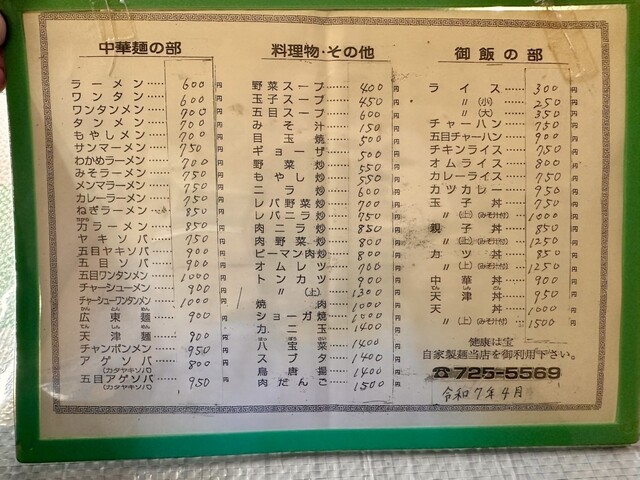 中華麺の部
ラーメン……600円
ワンタン……600円
ワンタンメン……700円
タンメン……700円
もやしメン……700円
サンマーメン……750円
わかめラーメン……700円
みそラーメン……750円
メンマラーメン……750円
カレーラーメン……750円
ねぎラーメン……850円
力ラーメン……850円
ヤキソバ……750円
五目ヤキソバ……900円
五目ソバ……900円
五目ワンタンメン……1000円
チャーシューメン……900円
チャーシューワンタンメン……1000円
広東麺……900円
天津麺……900円
チャンポンメン……950円
アゲソバ……800円
(カタヤキソバ)
五目アゲソバ……950円
(カタヤキソバ)
料理物・その他
野菜スープ……400円
玉子スープ……450円
五目スープ……600円
みそ汁……150円
目玉焼……500円
ギョーザ……500円
野菜炒……550円
もやし炒……550円
ニラ炒……600円
レバ野菜炒……700円
レバニラ炒……750円
肉ニラ炒……850円
肉野菜炒……800円
ピーマン肉炒……800円
オムレツ……700円
トンカツ……900円
〃(上)……1300円
焼肉……1000円
ショーガ焼……1000円
カニ玉……1400円
八宝菜……1400円
スブタ……1400円
鳥唐揚……1400円
肉だんご……1500円
御飯の部
ライス……300円
〃(小)……250円
〃(大)……350円
チャーハン……750円
五目チャーハン……900円
チキンライス……750円
オムライス……800円
カレーライス……750円
カツカレー……950円
玉子丼……750円
〃(上)(みそ汁付)…1000円
親子丼……850円
〃(上)(みそ汁付)…1250円
カツ丼……850円
〃(上)(みそ汁付)…1250円
中華丼……900円
天津丼……950円
天丼……1000円
〃(上)(みそ汁付)…1500円
健康は宝
自家製麺当店を御利用下さい。
☎725-5569
令和7年4月